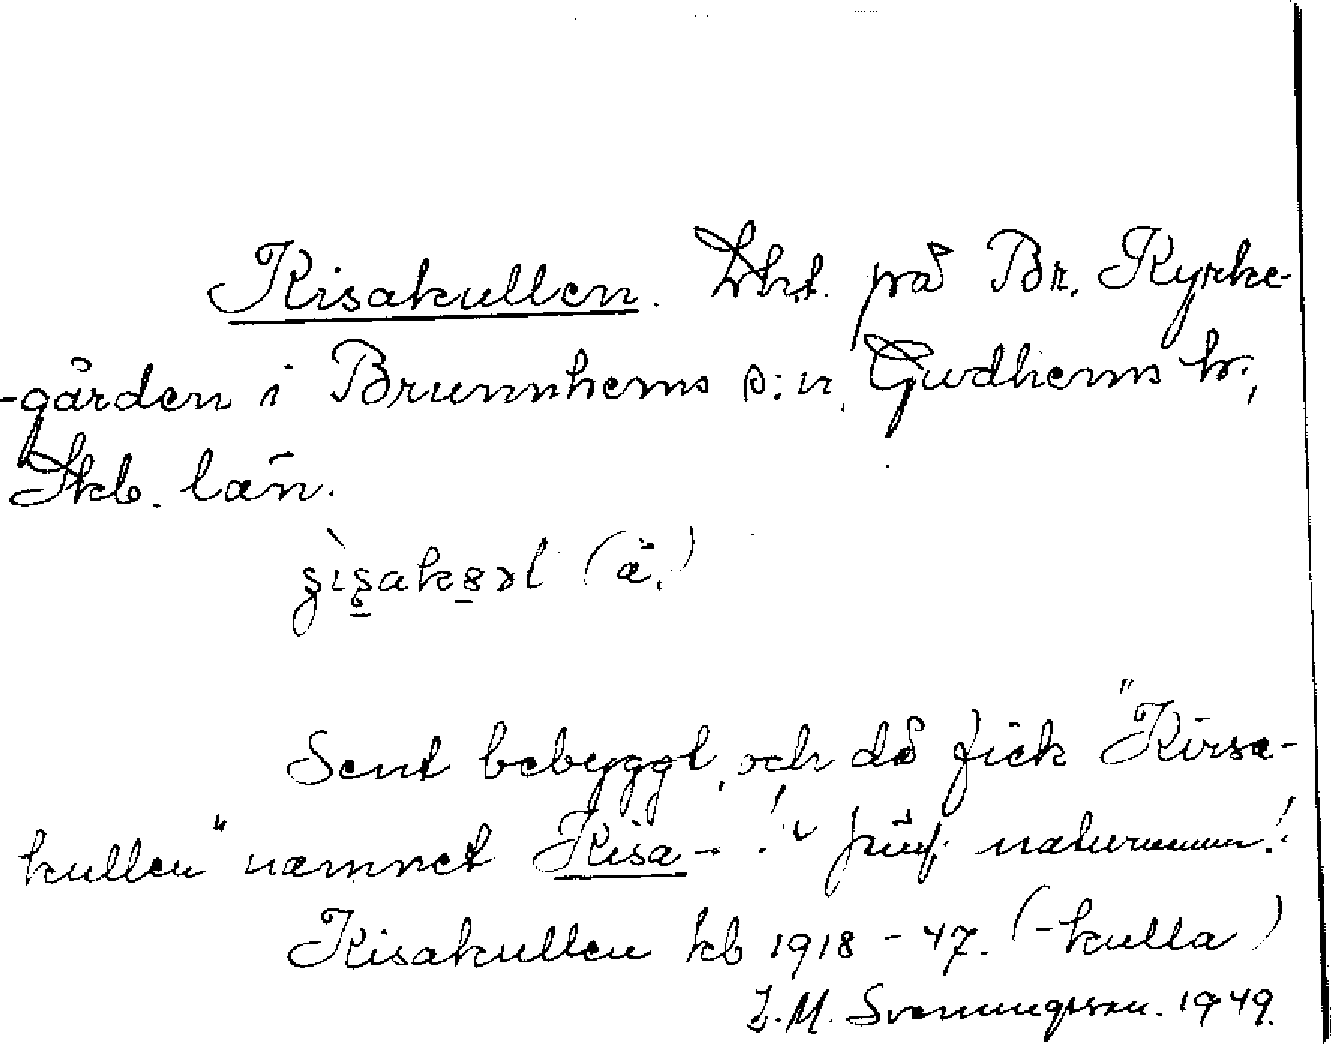 Kisakullen. Lht. på Br. Kyrke-
-gården i Brunnhems s:n, Gudhems hr,
Skb. län.
(ä.)
Sent bebyggt, och då fick "Kirse-
kullen" namnet Kisa- ! jmf. naturnamn!
Kisakullen kb 1918-47. (-kulla)
Z.M. Svenungsson. 1949.